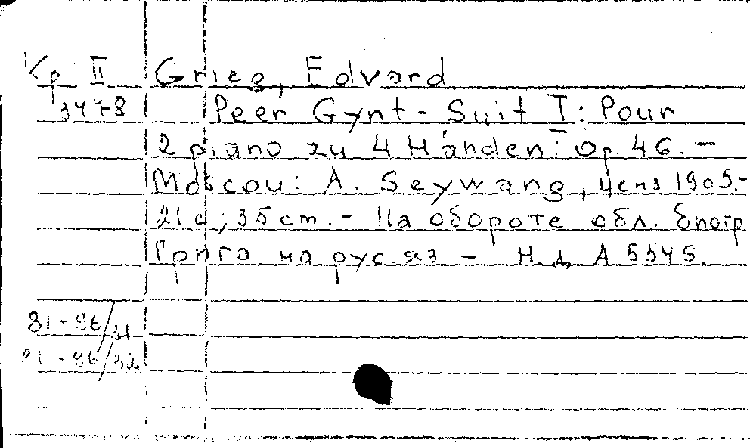 Кр. II Grieg, Edvard
3478 Peer Gynt - Suit I: Pour
2 piano zu 4 Händen: Op 46. –
Moscou: A. Seywang, ценз 1905.–
21 с; 35 cm. – На обороте обл. биогр
Грига на рус яз – Н. д. А 5545.
81-86/31
81-86/32